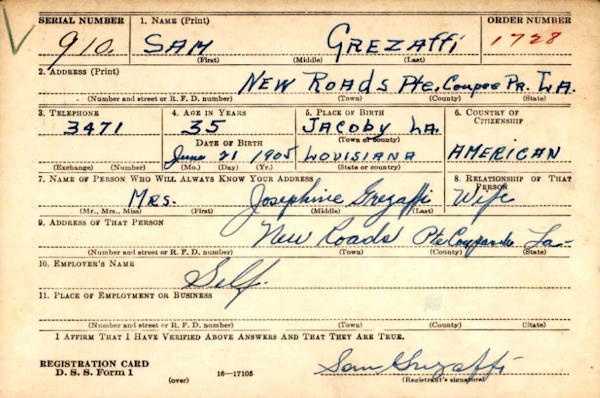 SERIAL NUMBER 1. NAME (Print) ORDER NUMBER
910. SAM GREZAFFI 1728
(First) (Middle) (Last)
2. ADDRESS (Print)
NEW ROADS Pte. Coupee Pr. LA.
(Number and street or R. F. D. number) (Town) (County) (State)
3. TELEPHONE 4. AGE IN YEARS 5. PLACE OF BIRTH 6. COUNTRY OF CITIZENSHIP
3471 35 JACOBY LA.
DATE OF BIRTH (Town or county)
June 21 1905 LOUISIANA AMERICAN
(Exchange) (Number) (Mo.) (Day) (Yr.) (State or country)
7. NAME OF PERSON WHO WILL ALWAYS KNOW YOUR ADDRESS 8. RELATIONSHIP OF THAT PERSON
MRS. Josephine Grezaffi Wife
(Mr., Mrs., Miss) (First) (Middle) (Last)
9. ADDRESS OF THAT PERSON
New Roads Pte Coupee La-
(Number and street or R. F. D. number) (Town) (County) (State)
10. EMPLOYER'S NAME
Self.
11. PLACE OF EMPLOYMENT OR BUSINESS
(Number and street or R. F. D. number) (Town) (County) (State)
I AFFIRM THAT I HAVE VERIFIED ABOVE ANSWERS AND THAT THEY ARE TRUE.
REGISTRATION CARD Sam Grezaffi
D. S. S. Form 1 (over) 16—17105 (Registrant's signature)